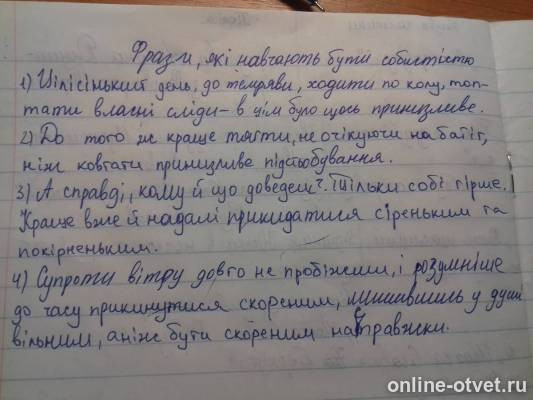 Фрази, які навчають бути собистістю
1) Цілісінький день, до темряви, ходити по колу, топ-
тати власні сліди – в цім було щось принизливе.
2) До того ж краще тягти, не очікуючи на батіг,
ніж ковтати принизливе підстьобування.
3) А справді, кому й що доведеш? Тільки собі гірше.
Краще вже й надалі прикидатися сіреньким та
покірненьким.
4) Супроти вітру довго не пробіжиш, і розумніше
до часу прикинутися скореним, лишившись у душі
вільним, аніж бути скореним насправжки.
online-otvet.ru